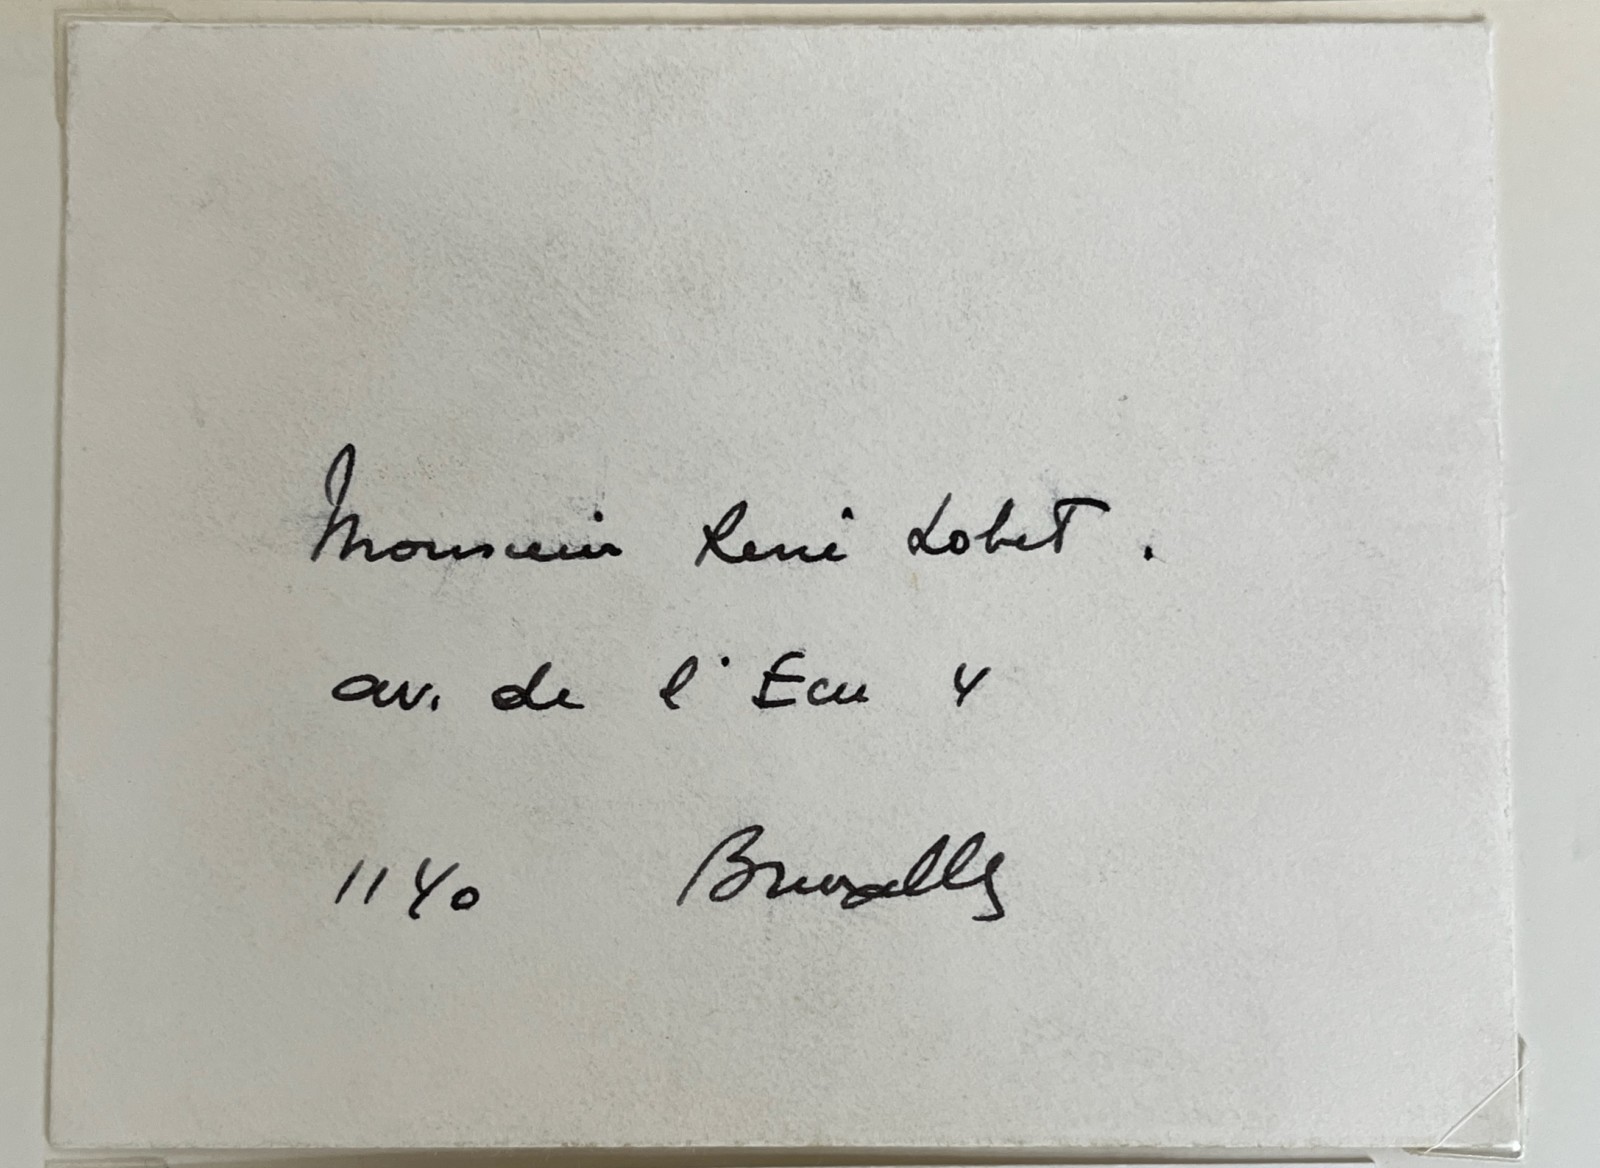 Monsieur René Lobet.
av. de l'Ecu 4
1140 Bruxelles